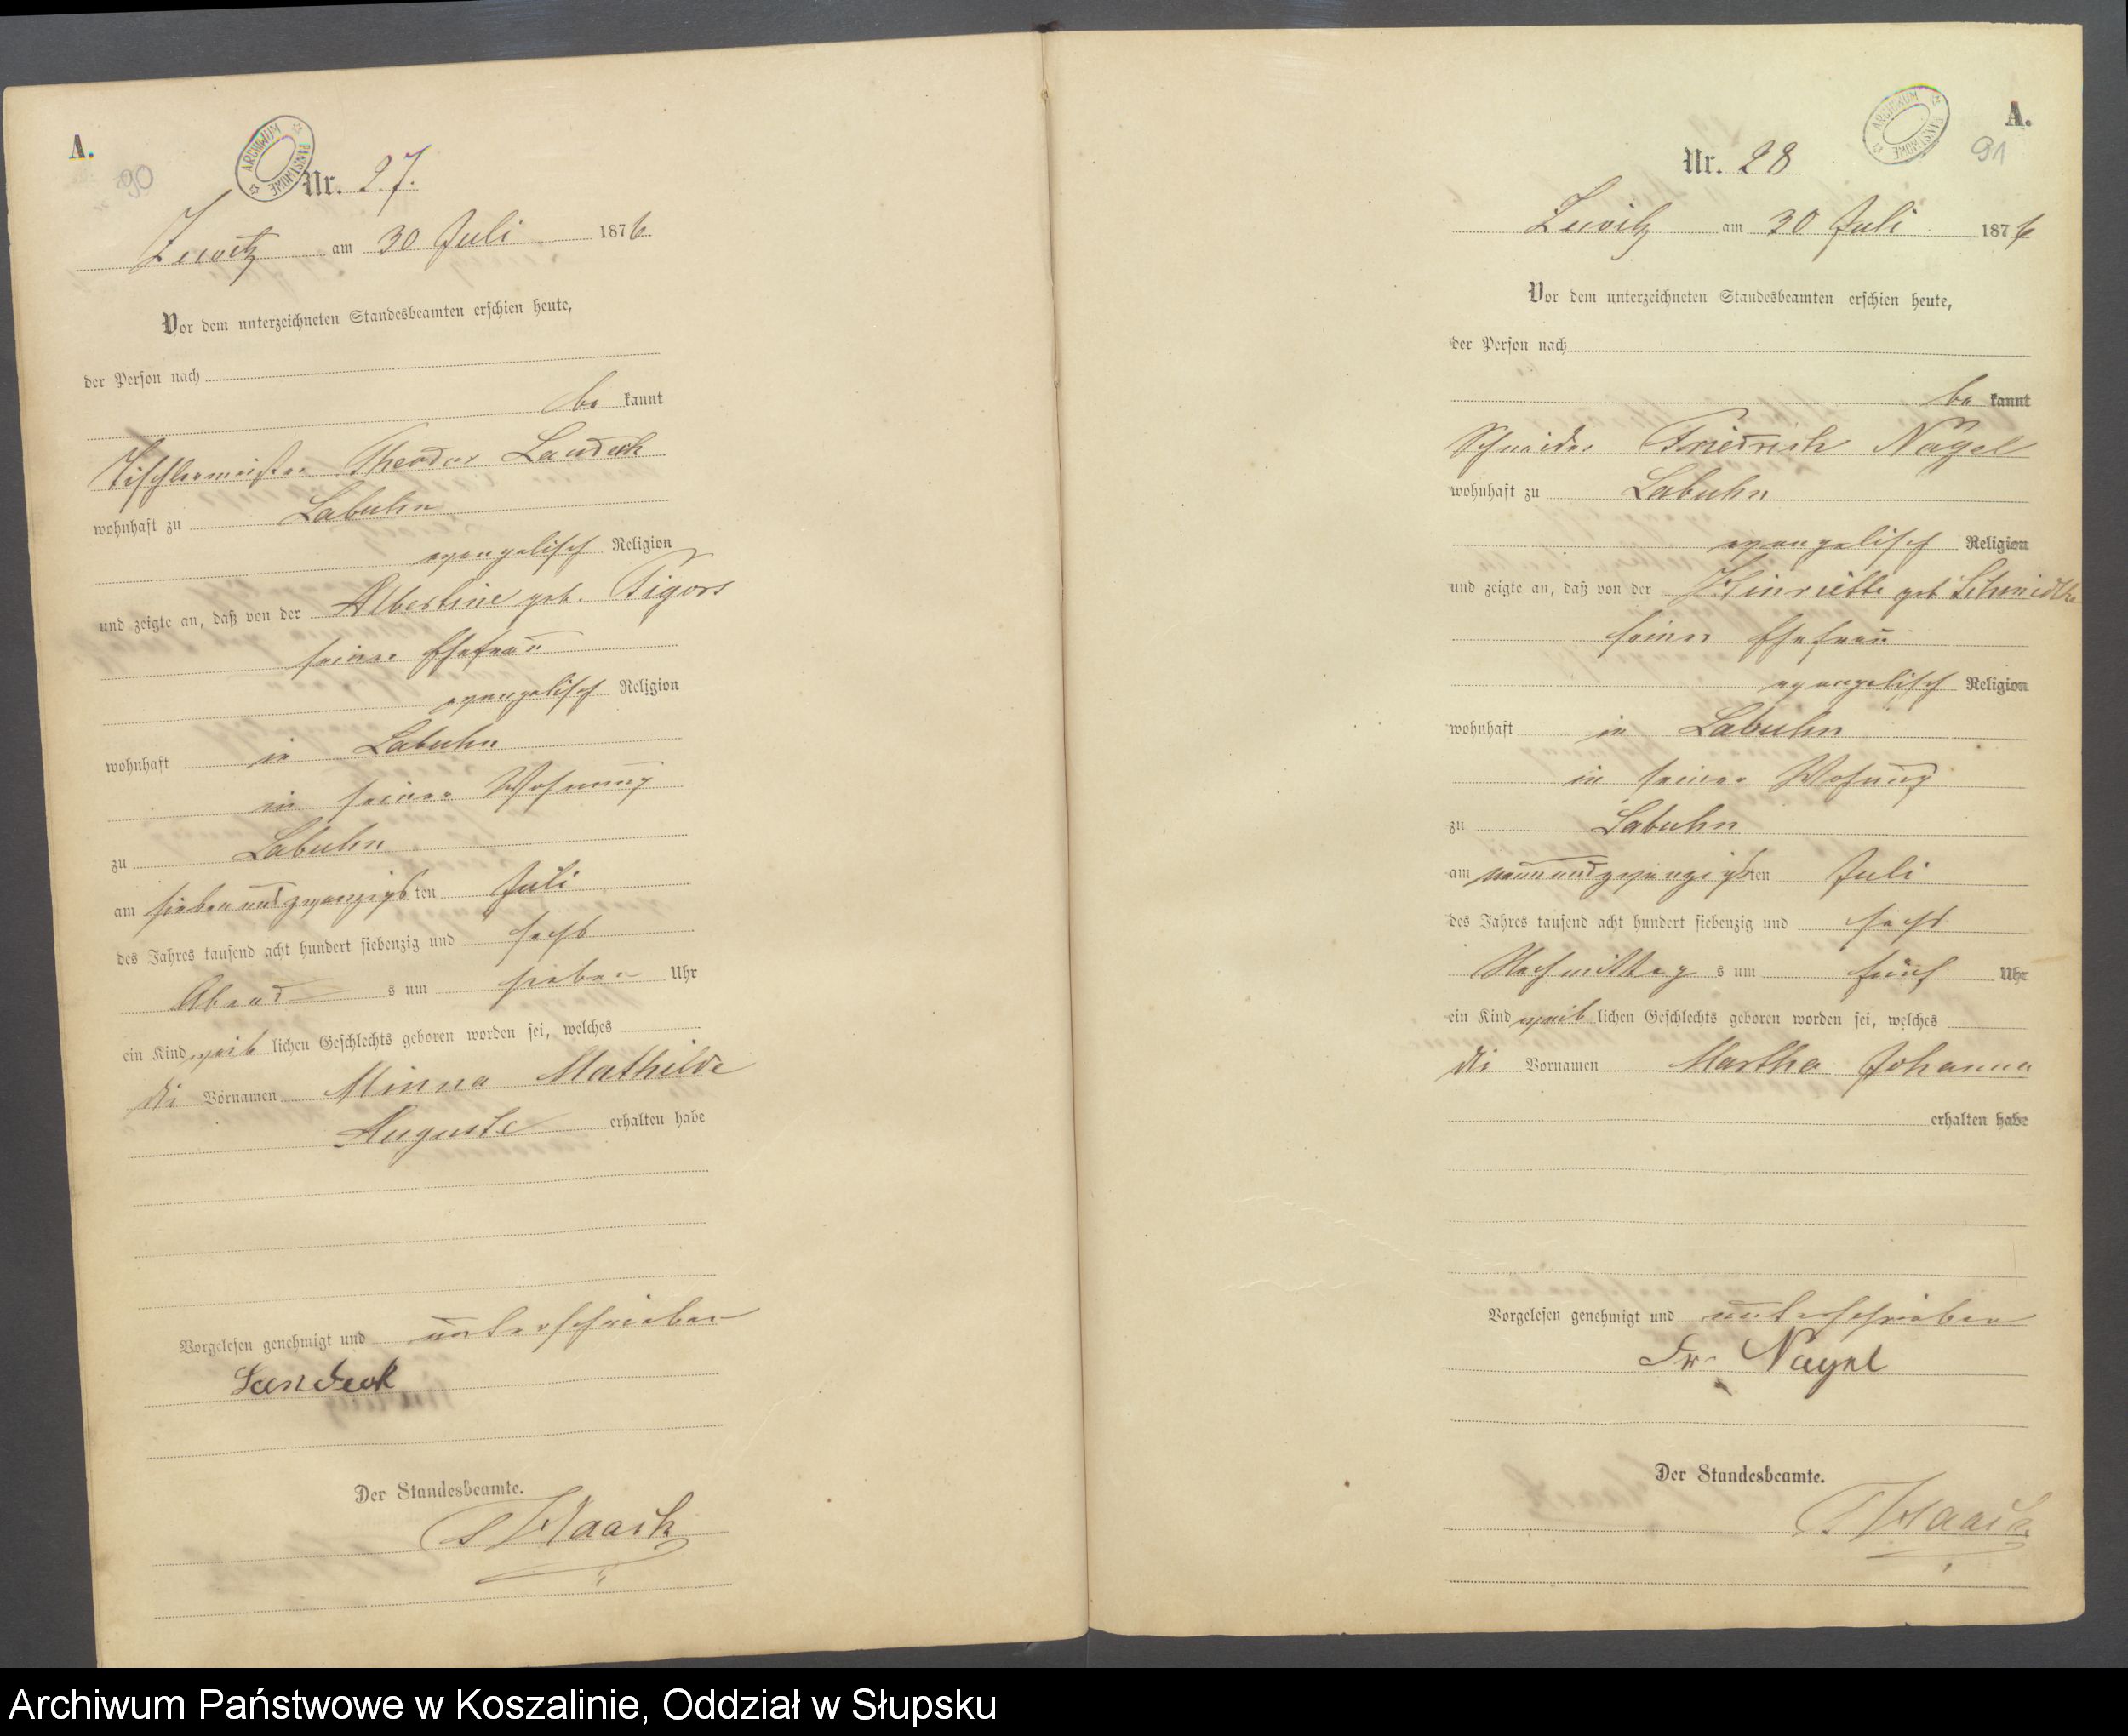 A.
90
ARCHIWUM PAŃSTWOWE
Nr. 27.
Zewitz am 30 Juli 1876
Vor dem unterzeichneten Standesbeamten erschien heute,
der Person nach
be kannt
Tischlermeister Theodor Landeck
wohnhaft zu Labuhn
evangelisch Religion
und zeigte an, daß von der Albertine geb. Tigors
seiner Ehefrau
evangelisch Religion
wohnhaft in Labuhn
in seiner Wohnung
zu Labuhn
am siebenundzwanzigsten Juli
des Jahres tausend acht hundert siebenzig und sechs
Abend s um sieben Uhr
ein Kind weib lichen Geschlechts geboren worden sei, welches
die Vornamen Minna Mathilde
Auguste erhalten habe
Vorgelesen genehmigt und unterschrieben
Landeck
Der Standesbeamte.
Haack
A.
91
ARCHIWUM PAŃSTWOWE
Nr. 28
Zewitz am 30 Juli 1876
Vor dem unterzeichneten Standesbeamten erschien heute,
der Person nach
be kannt
Schneider Friedrich Nagel
wohnhaft zu Labuhn
evangelisch Religion
und zeigte an, daß von der Henriette geb Schmidtke
seiner Ehefrau
evangelisch Religion
wohnhaft in Labuhn
in seiner Wohnung
zu Labuhn
am neunundzwanzigsten Juli
des Jahres tausend acht hundert siebenzig und sechs
Nachmittag s um fünf Uhr
ein Kind weib lichen Geschlechts geboren worden sei, welches
die Vornamen Martha Johanna
erhalten habe
Vorgelesen genehmigt und unterschrieben
Fr. Nagel
Der Standesbeamte.
Haack
Archiwum Państwowe w Koszalinie, Oddział w Słupsku